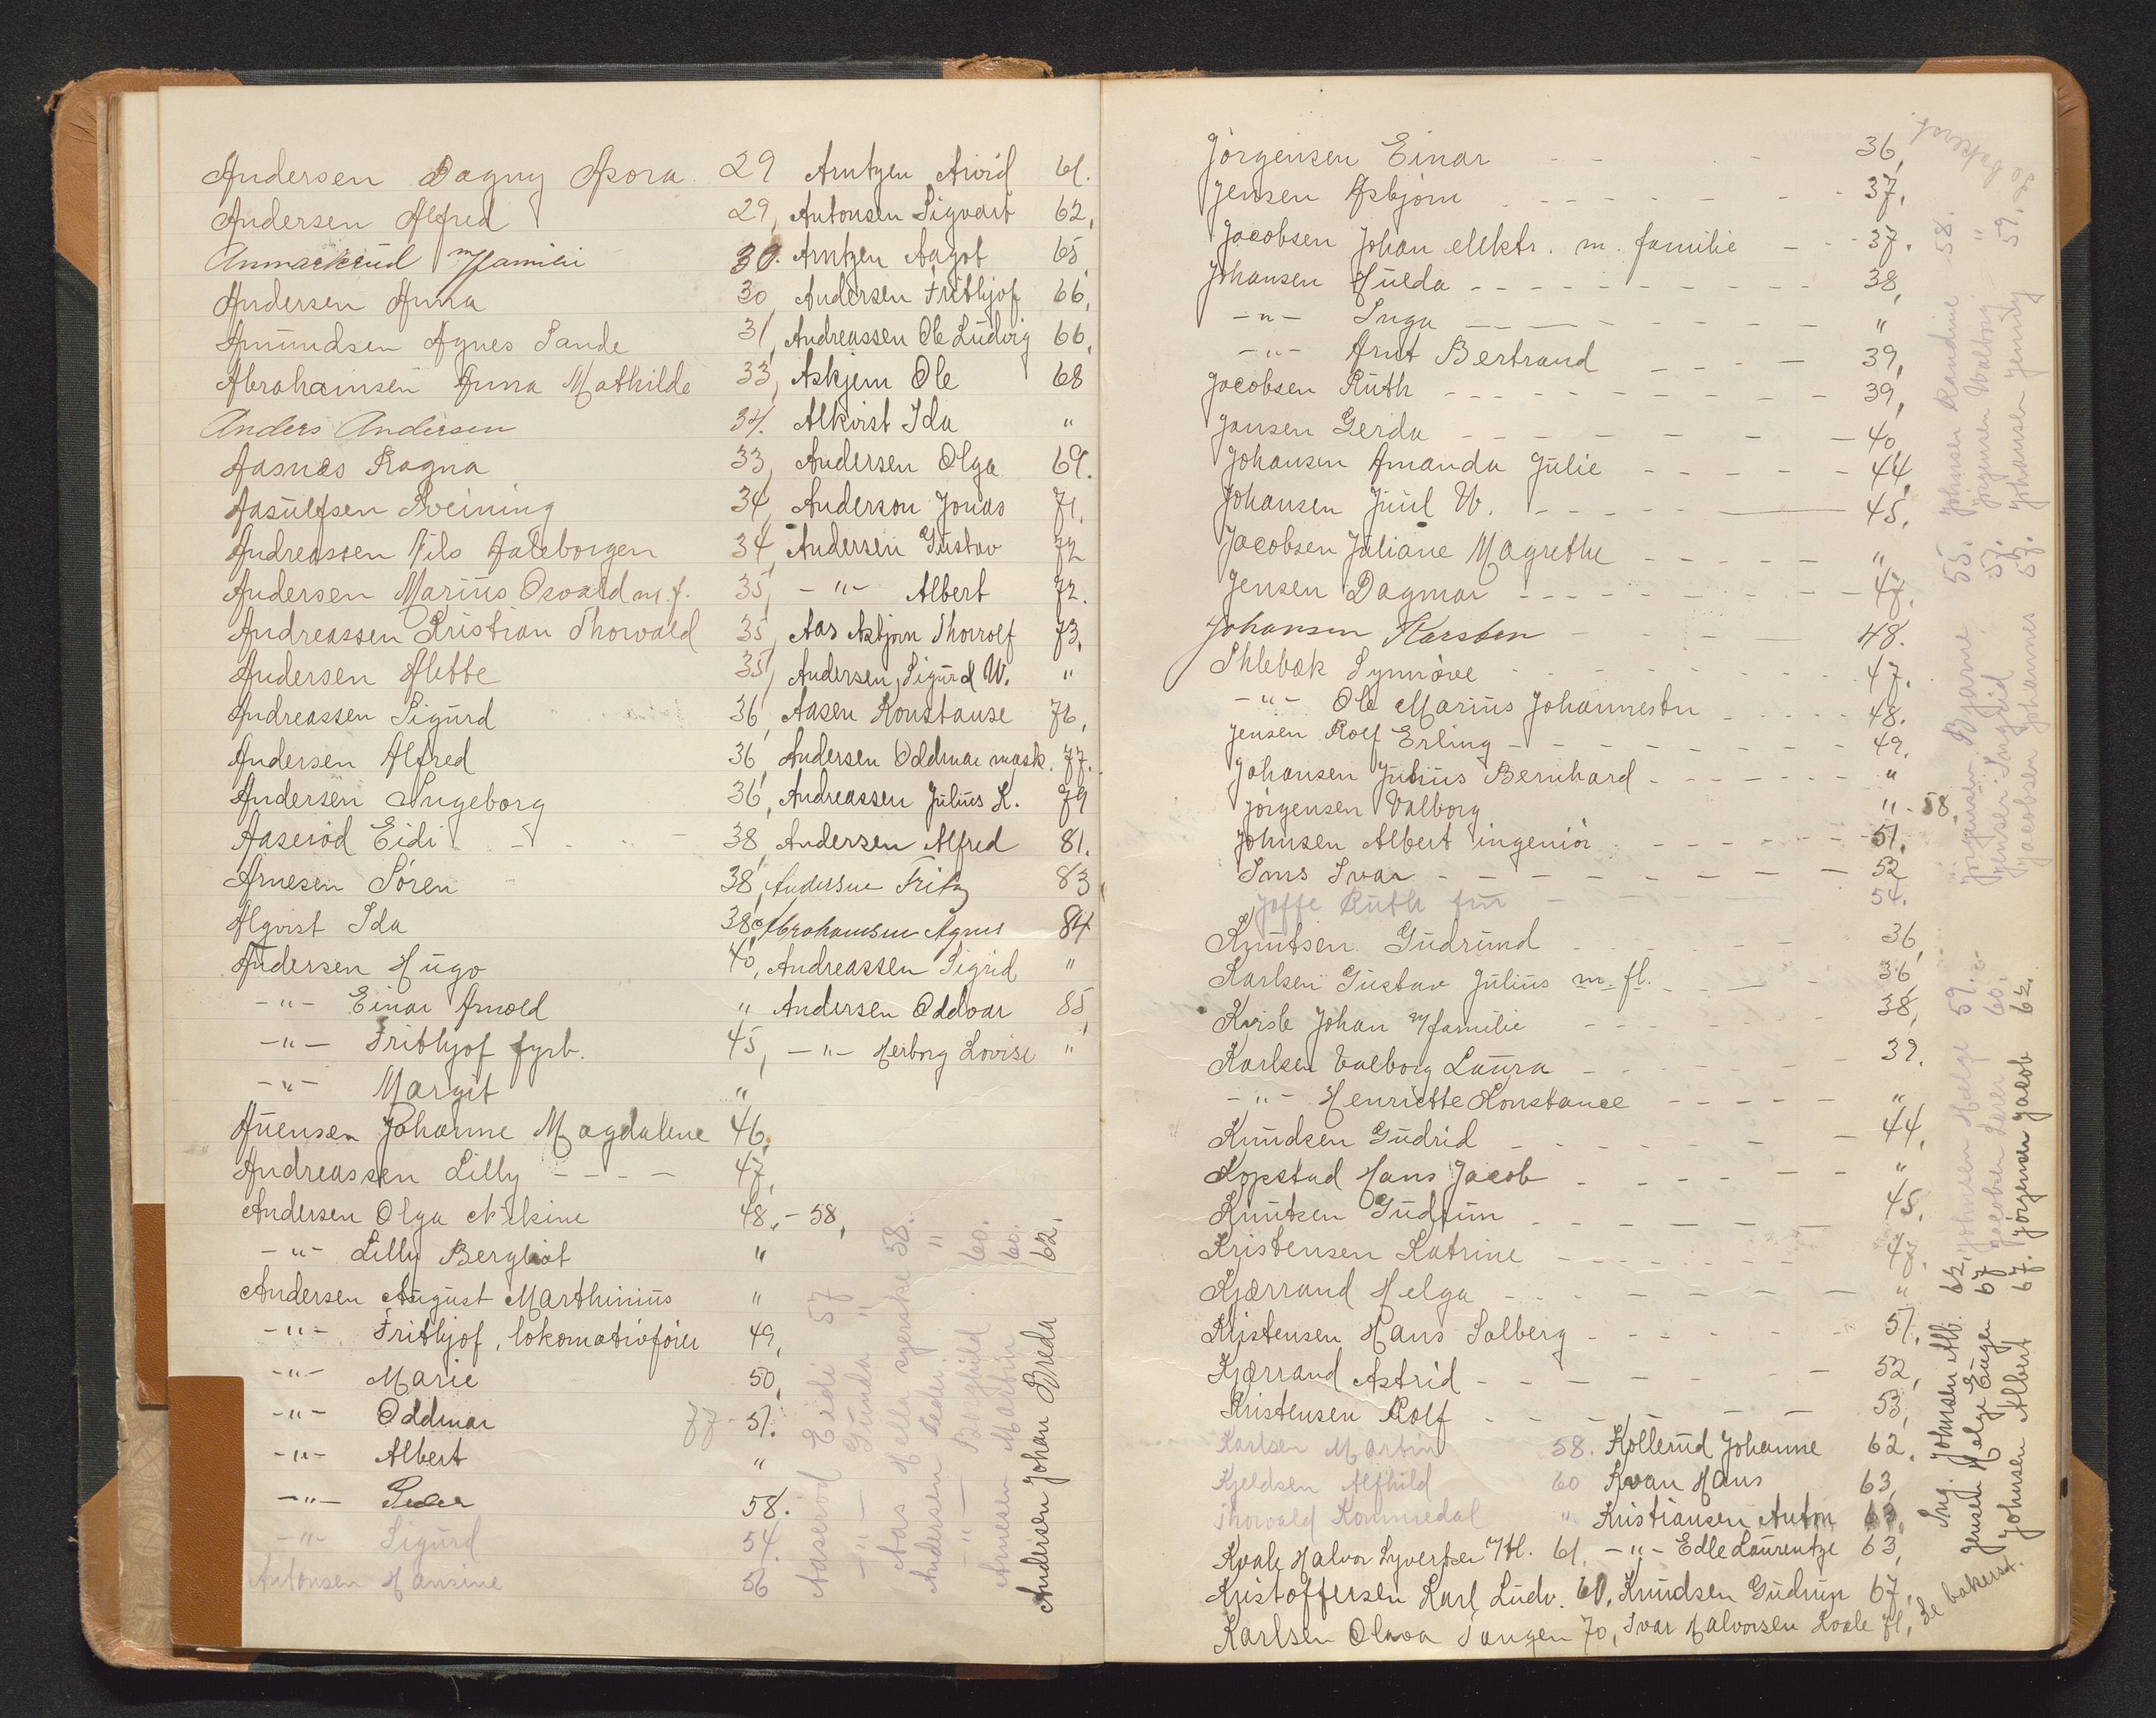 Andersen Dagny Asora 29
Andersen Alfred 29,
Anmarkrud m/familie 30.
Andersen Anna 30,
Amundsen Agnes Sande 31,
Abrahamsen Anna Mathilde 33,
Anders Andersen 34.
Aasnæs Ragna 33,
Aasulfsen Sveining 34,
Andreassen Nils Aaleborgen 34,
Andersen Marius Osvald m.f. 35,
Andreassen Kristian Thorvald 35,
Andersen Alette 35,
Andreassen Sigurd 36,
Andersen Alfred 36,
Andersen Ingeborg 36,
Aaseröd Eidi 38,
Arnesen Sören 38,
Alqvist Ida 38,
Andersen Hugo 40,
-"- Einar Arnold "
-"- Frithjof fyrb. 45,
-"- Margit "
Auensen Johanne Magdalene 46.
Andreassen Lilly - - - - 47,
Andersen Olga Nikine 48,-58,
-"- Lilly Bergliot "
Andersen August Marthinius "
-"- Frithjof, lokomotivförer 49,
-"- Marie 50,
-"- Oddmar 77-51.
-"- Albert "
-"- Peder 58.
-"- Sigurd 54.
Antonsen Hansine 56
Arntzen Arvid 61.
Antonsen Sigvart 62,
Arntzen Aagot 65,
Andersen Frithjof 66,
Andreassen Ole Ludvig 66,
Askjem Ole 68
Alkvist Ida "
Andersen Olga 69.
Anderson Jonas 71.
Andersen Gustav 72
-"- Albert 72.
Aas Asbjörn Thorrolf 73,
Andersen, Sigurd W. "
Aasen Konstanse 76,
Andersen Oddmar mask. 77.
Andreassen Julius K. 79
Andersen Alfred 81.
Andersen Fritz 83
Abrahamsen Agnes 84
Andreassen Sigrid "
Andersen Oddvar 85,
-"- Herborg Lovise "
Aaseröd Eidi 57
-"- Gunda "
Aas Hela syerske 58.
Anderssen Peder "
-"- Borghild 60.
Arnesen Martin 60.
Andersen Johan Breda 62.
Jörgensen Einar 36,
Jensen Asbjörn 37,
Jacobsen Johan elektr. m. familie 37.
Johansen Hulda 38,
-"- Inga "
-"- Arnt Bertrand 39,
Jacobsen Ruth 39,
Jansen Gerda 40,
Johansen Amanda Julie 44,
Johansen Juul W. 45.
Jacobsen Juliane Magrethe "
Jensen Dagmar 47.
Johansen Karsten 48.
Ihlebæk Synnöve 47.
-"- Ole Marius Johannesen 48.
Jensen Rolf Erling 49.
Johansen Julius Bernhard "
Jörgensen Valborg "-58,
Johnsen Albert ingeniör 51.
Ims Ivar 52
Joffe Ruth frü 54.
Knutsen Gudrund 36,
Karlsen Gustav Julius m. fl. 36,
Kvisle Johan m/familie 38,
Karlsen Valborg Laura 39.
-"- Henriette Konstance "
Knudsen Gudrid 44,
Kopstad Hans Jacob "
Knutsen Gudrun 45,
Kristensen Katrine 47,
Kjærrand Helga "
Kristensen Hans Solberg 51.
Kjærrand Astrid 52,
Kristensen Rolf 53,
Karlsen Martin 58. Kollerud Johanne 62.
Kjeldsen Alfhild 60 Kvan Hans 63,
Thorvald Kommedal " Kristiansen Anton 63,
Kvale Halvor Syvertsen 61. -"- Edle Laurentze 63,
Kristoffersen Karl Ludv. 61, Knudsen Gudrun 67,
Karlsen Olava Tangen 70, Ivar Halvorsen Kvale 71,
Jörgensen Bjarne 55. Johnsen Randine 58.
Jensen Ingrid 57. Jörgensen Valborg "
Jacobsen Johannes 57. Johansen Jenny 59. Se bakerst.
Ing. Johnsen Alb. 62, Johnsen Helge 59.
Jensen Helge Eugen 67 Jacobsen 60.
Johnsen Albert 67. Jörgensen Jacob 62.
Se bakerst.